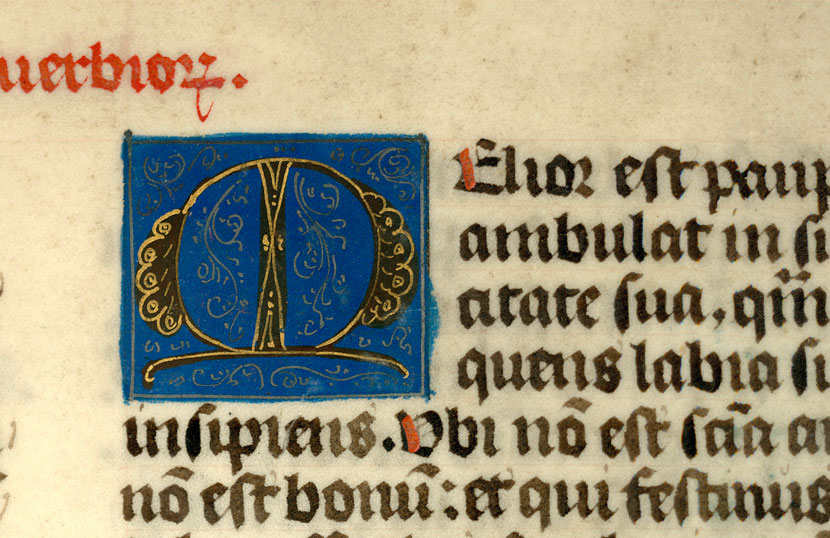 uerbioꝝ.
MElior est paup
ambulat in si
citate sua, qm̄
quens labia su
insipiens. Vbi nō est scīa a
nō est bonū: et qui festinus